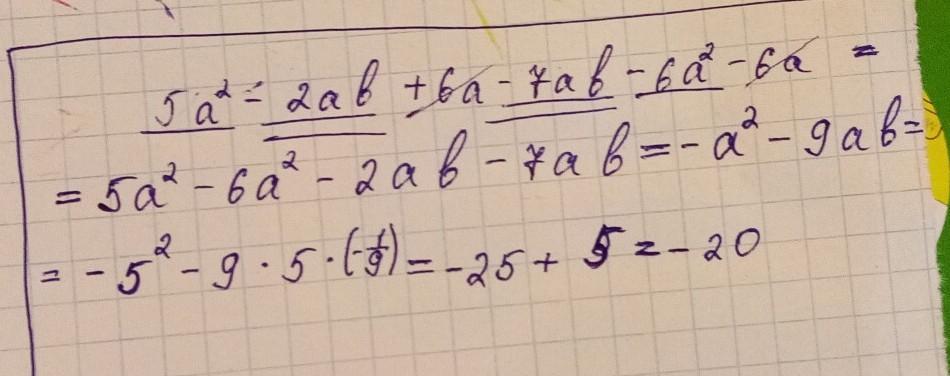 5a² - 2ab + 6a - 7ab - 6a² - 6a =
= 5a² - 6a² - 2ab - 7ab = -a² - 9ab =
= -5² - 9 · 5 · (-1/9) = -25 + 5 = -20